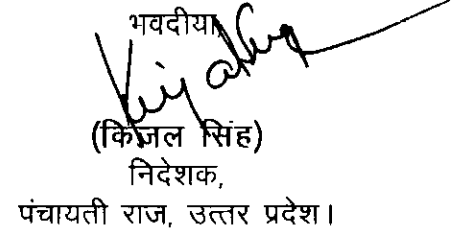 भवदीया,
(किंजल सिंह)
निदेशक,
पंचायती राज, उत्तर प्रदेश।